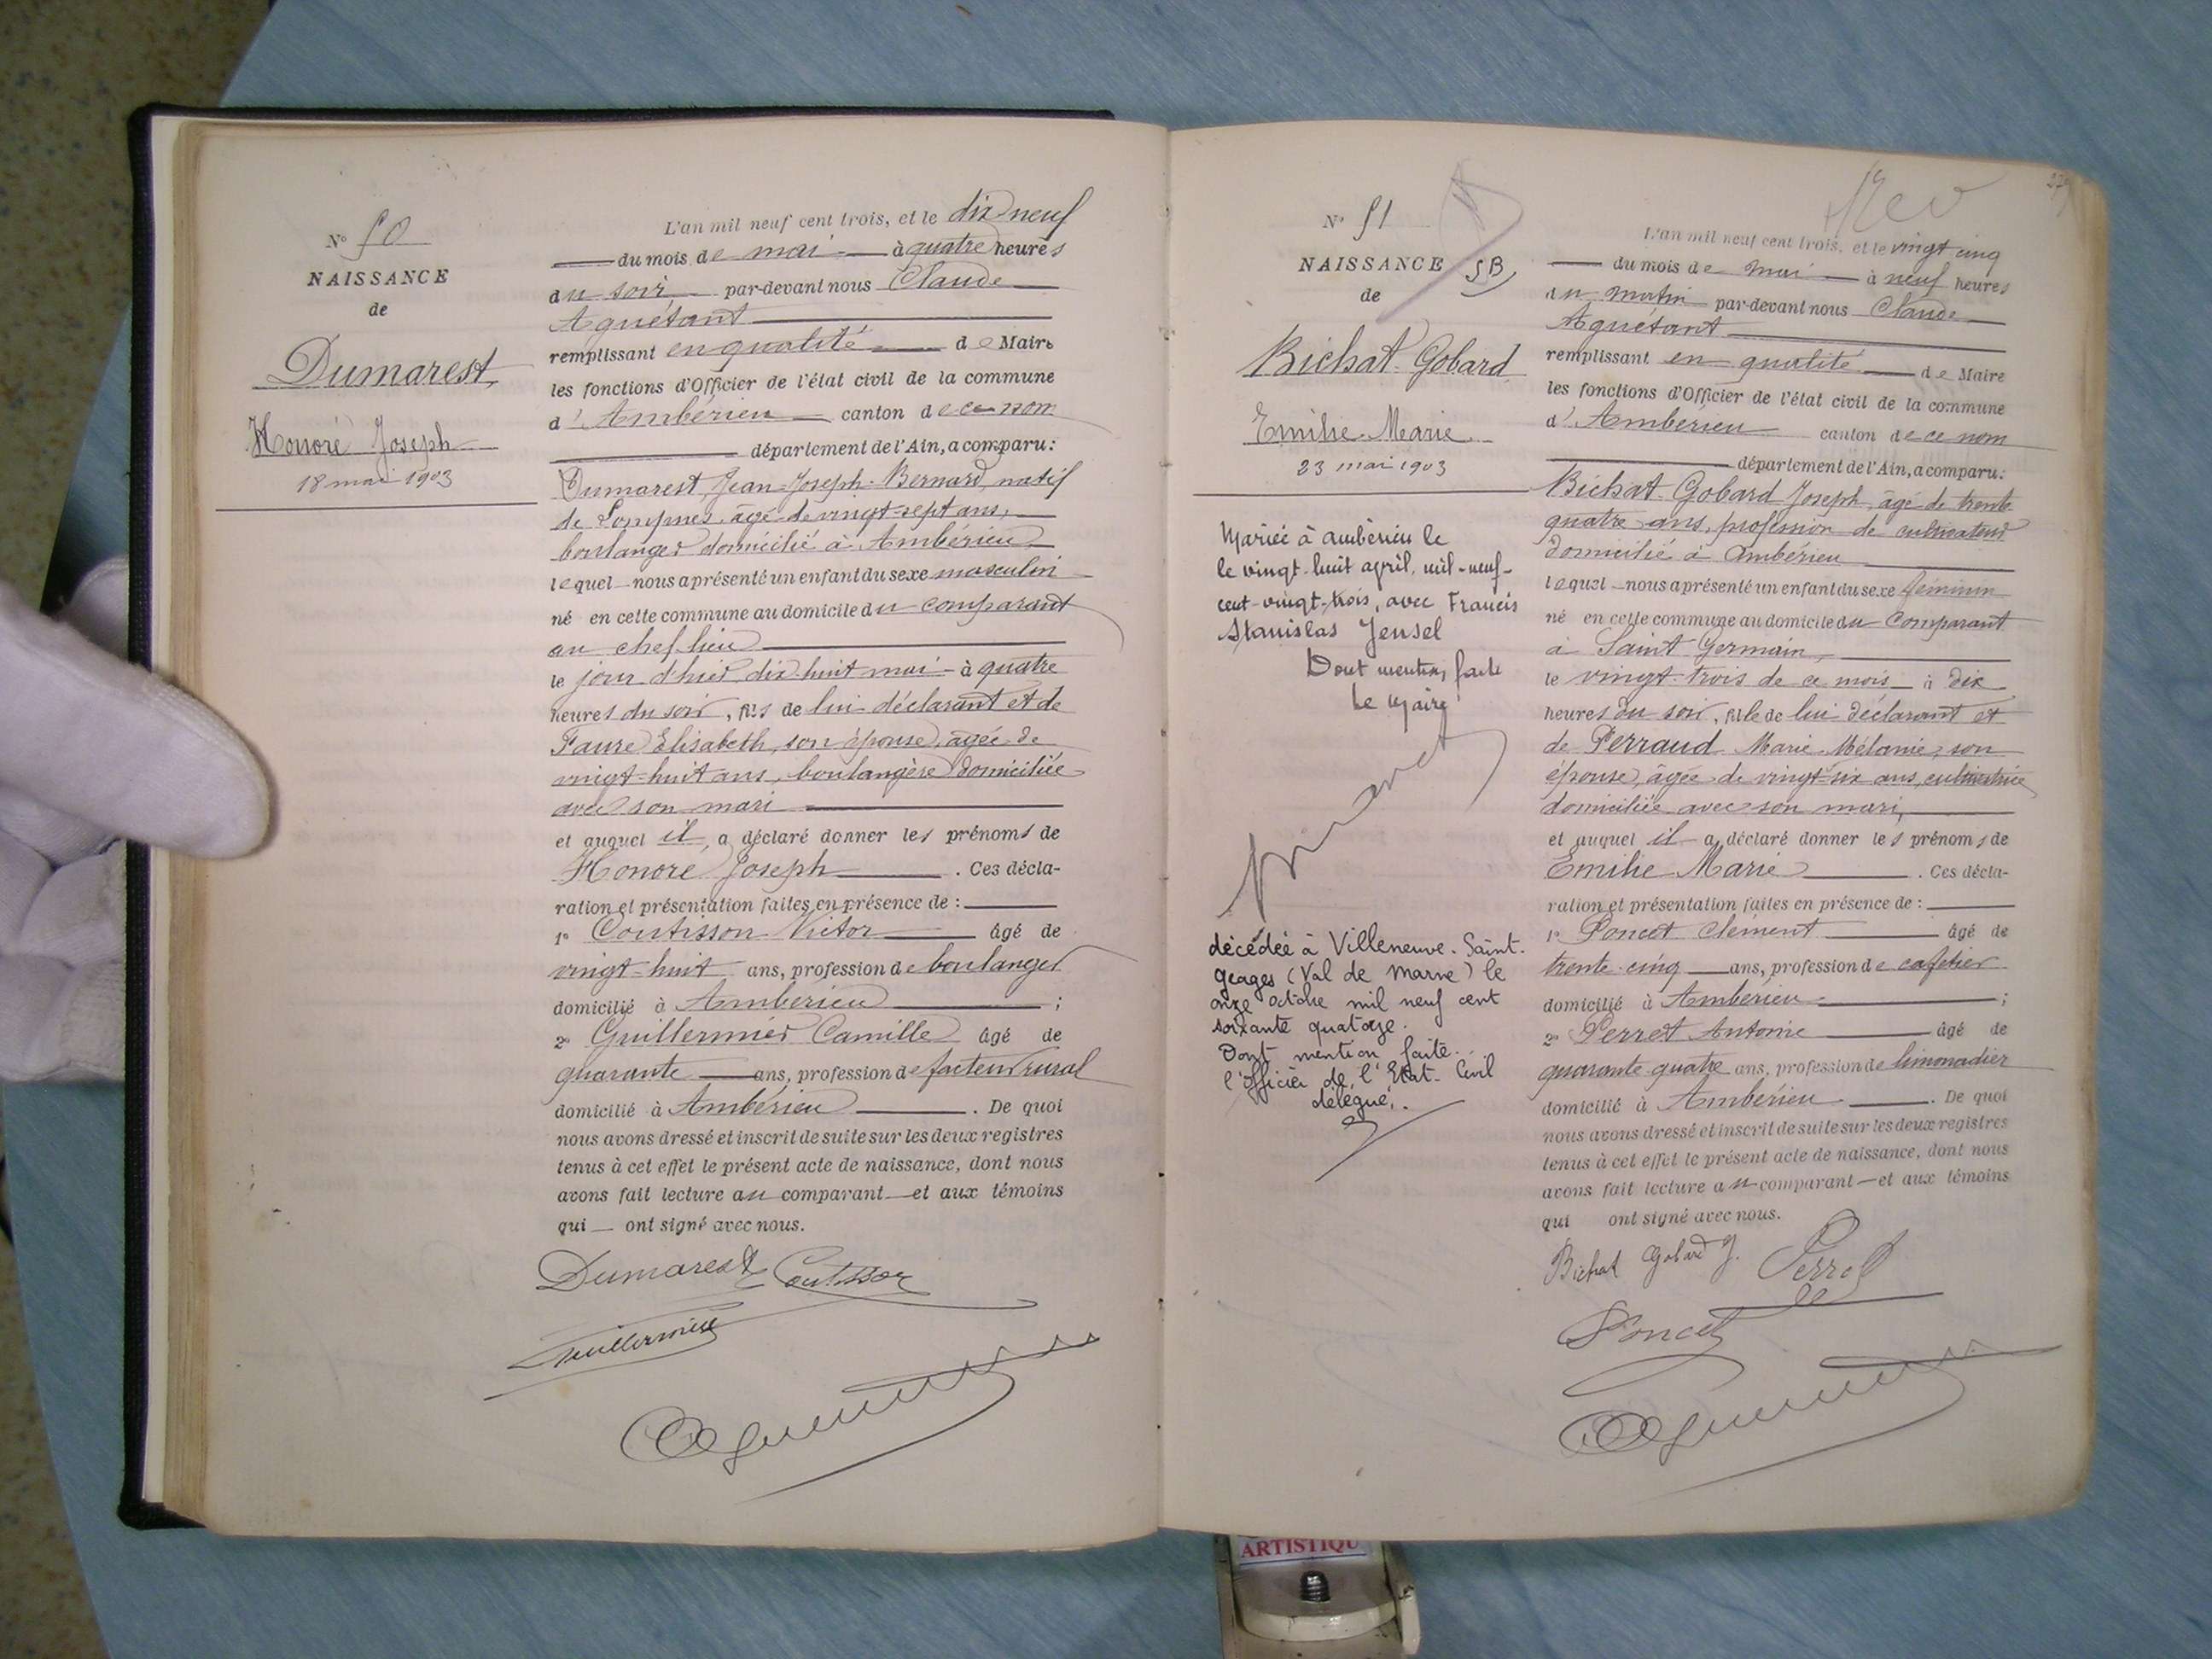 N° 50
NAISSANCE
de
Dumarest
Honoré Joseph
18 mai 1903
L'an mil neuf cent trois, et le dix neuf
du mois de mai à quatre heures
du soir par-devant nous Claude
Aguétant
remplissant en qualité de Maire
les fonctions d'Officier de l'état civil de la commune
d'Ambérieu canton de ce nom
département de l'Ain, a comparu:
Dumarest Jean-Joseph-Bernard, natif
de âgé de vingt-sept ans,
boulanger domicilié à Ambérieu
lequel nous a présenté un enfant du sexe masculin
né en cette commune au domicile du comparant
au chef lieu
le jour d'hier dix huit mai à quatre
heures du soir, fils de lui déclarant et de
Faure Elisabeth, son épouse, agée de
vingt-huit ans, boulangère domiciliée
avec son mari
et auquel il, a déclaré donner les prénoms de
Honoré Joseph . Ces décla-
ration et présentation faites en présence de :
1° Coutisson Victor âgé de
vingt-huit ans, profession de boulanger
domicilié à Ambérieu ;
2° Guillermier Camille âgé de
quarante ans, profession de facteur rural
domicilié à Ambérieu . De quoi
nous avons dressé et inscrit de suite sur les deux registres
tenus à cet effet le présent acte de naissance, dont nous
avons fait lecture au comparant et aux témoins
qui ont signé avec nous.
Dumarest Coutisson
Guillermier
Aguétant
N° 51
NAISSANCE SB
de
Bichat-Gobard
Emilie Marie
23 mai 1903
Mariée à Ambérieu le
le vingt-huit april, mil-neuf-
cent-vingt-trois, avec Francis
Stanislas Jensel
Dont mention faite
Le Maire
décédée à Villeneuve-Saint-
Geages (Val de Marne) le
onze octobre mil neuf cent
soixante quatorze.
Dont mention faite.
l'Officier de l'Etat-Civil
délégué.
L'an mil neuf cent trois, et le vingt cinq
du mois de mai à neuf heures
du matin par-devant nous Claude
Aguétant
remplissant en qualité de Maire
les fonctions d'Officier de l'état civil de la commune
d'Ambérieu canton de ce nom
département de l'Ain, a comparu:
Bichat-Gobard Joseph, âgé de trente
quatre ans, profession de cultivateur
domicilié à Ambérieu
lequel nous a présenté un enfant du sexe féminin
né en cette commune au domicile du comparant
à Saint Germain,
le vingt-trois de ce mois à dix
heures du soir, fille de lui déclarant et
de Perraud Marie-Mélanie, son
épouse, âgée de vingt-six ans, cultivatrice
domiciliée avec son mari,
et auquel il a déclaré donner les prénoms de
Emilie Marie . Ces décla-
ration et présentation faites en présence de :
1° Poncet Clément âgé de
trente-cinq ans, profession de cafetier
domicilié à Ambérieu ;
2° Perret Antoine âgé de
quarante-quatre ans, profession de limonadier
domicilié à Ambérieu . De quoi
nous avons dressé et inscrit de suite sur les deux registres
tenus à cet effet le présent acte de naissance, dont nous
avons fait lecture au comparant et aux témoins
qui ont signé avec nous.
Bichat Gobard J. Perret
Poncet
Aguétant
ARTISTIQU